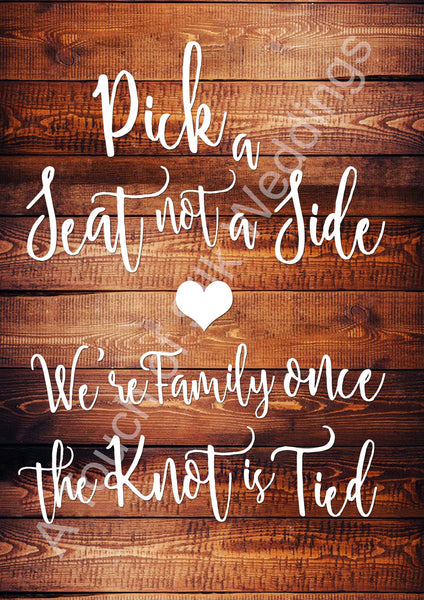 Pick a
Seat not a Side
We're Family once
the Knot is Tied
A touch of Silk Weddings